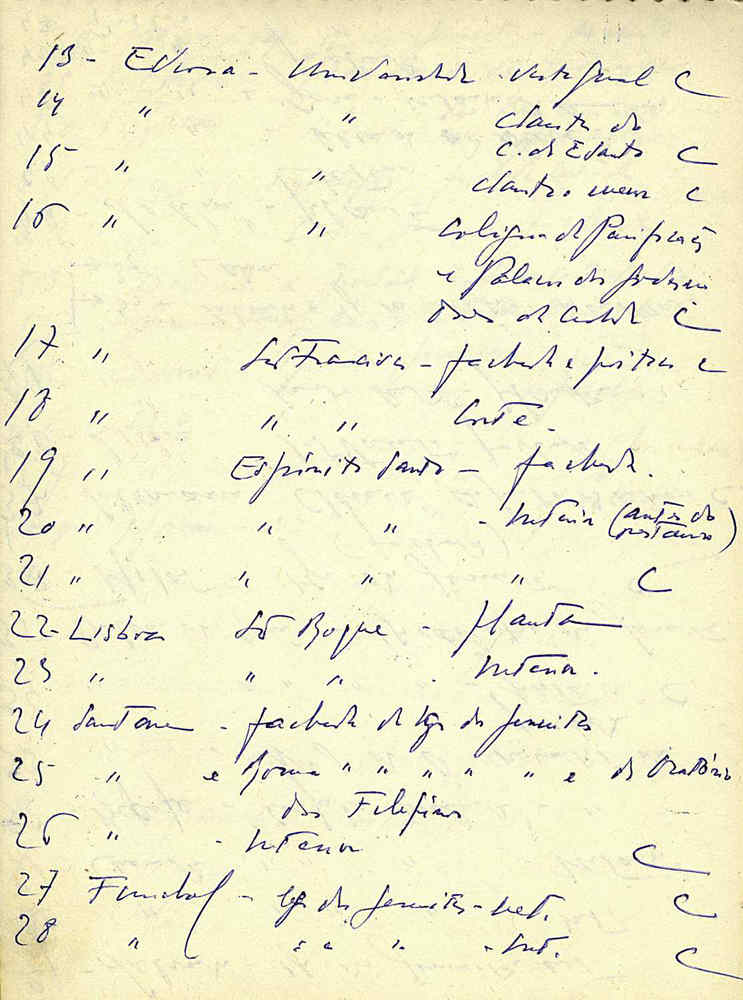 13 - Evora - Universidade - vista geral C
14 " " claustro do
C. do E Santo C
15 " " claustro menor C
16 " " Colegio da Purificação
e Palacio dos
C
17 " São Francisco - fachada e C
18 " " " Corte -
19 " Espirito Santo - fachada.
20 " " " - Interior (antes do
restauro)
21 " " " " C
22 - Lisboa São Roque - planta
23 " " " Interior.
24 Santarem - fachada da Igr. dos Jesuitas
25 " e Roma " " " " " e do Oratório
dos Filipinos
26 " - Interior C
27 Funchal - Igr. dos Jesuitas - C
28 " " " " - Int. C